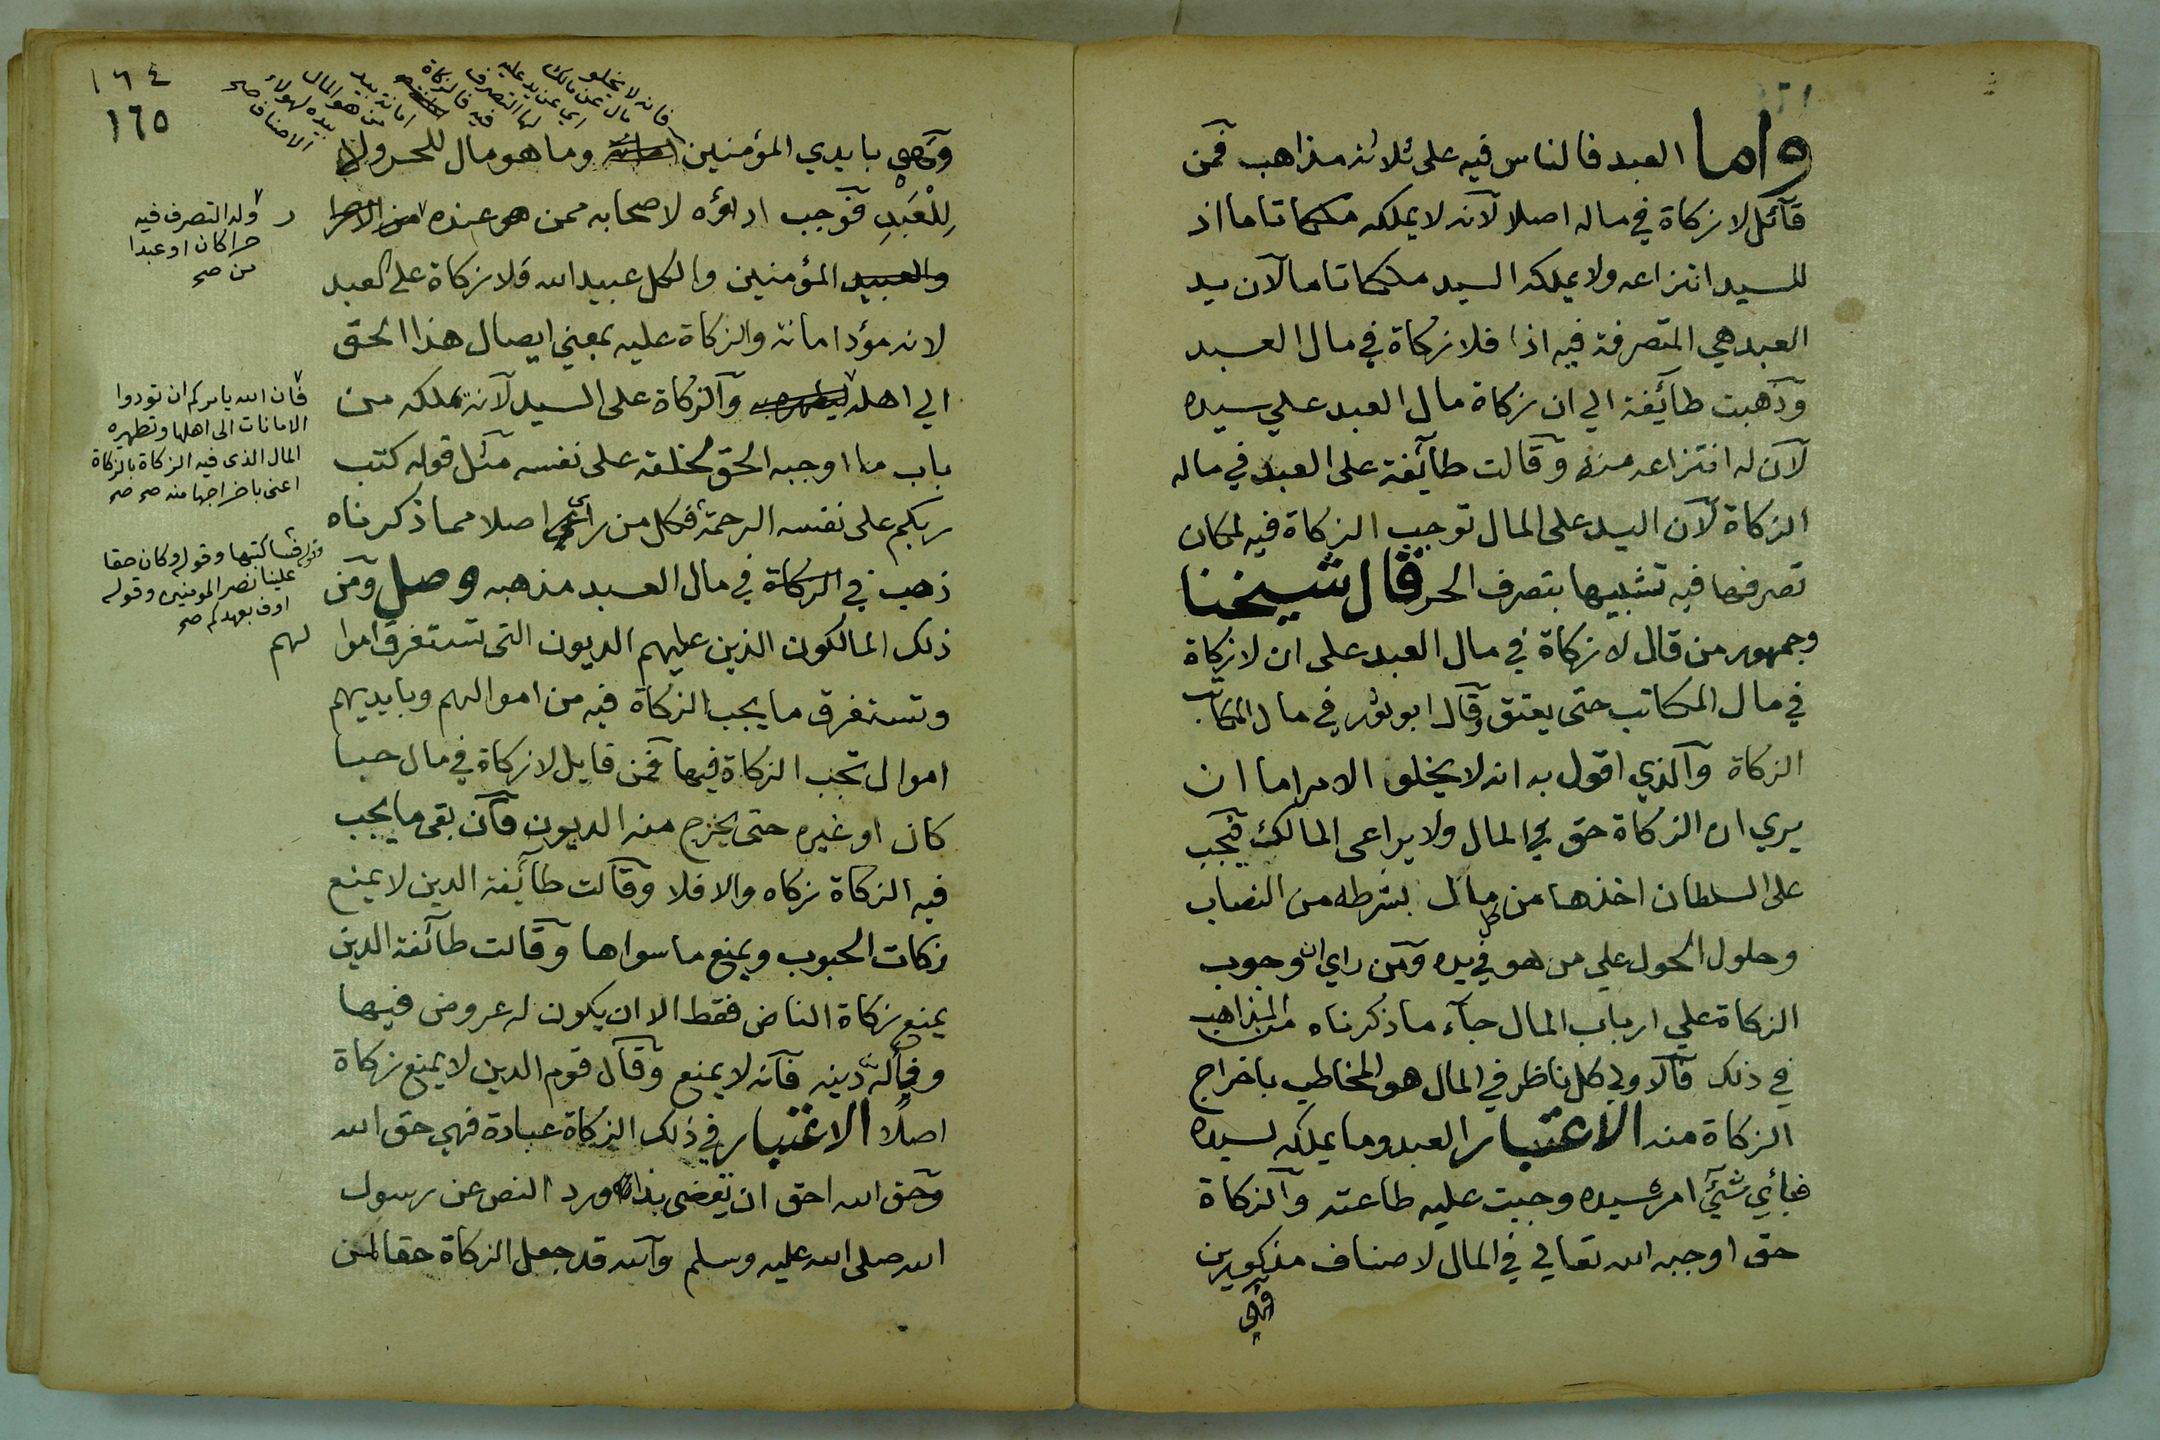 واما العبد فالناس فيه على ثلاثة مذاهب فمن
قآئل لا زكاة في ماله اصلا لانه لا يملكه ملكا تاما اذ
للسيد انتزاعه ولا يملكه السيد ملكا تاما لان يد
العبد هي المتصرفة فيه اذا فلا زكاة في مال العبد
وذهبت طآئفة الي ان زكاة مال العبد علي سيده
لان له انتزاعه منه وقالت طآئفة على العبد في ماله
الزكاة لان اليد على المال توجب الزكاة فيه لمكان
تصرفها فيه تشبيها بتصرف الحر قال شيخنا
وجمهور من قال لا زكاة في مال العبد على ان لا زكاة
في مال المكاتب حتى يعتق وقال ابو ثور في مال المكاتب
الزكاة والذي اقول به انه لا يخلو الامر اما ان
يري ان الزكاة حق في المال ولا يراعى المالك فيجب
على السلطان اخذها من كل مال بشرطه من النصاب
وحلول الحول علي من هو في يده ومن راي ان وجوب
الزكاة علي ارباب المال جآء ما ذكرناه من المذاهب
في ذلك فالاولى كل ناظر في المال هو المخاطب باخراج
الزكاة منه الاعتبار العبد وما يملكه لسيده
فبأي شيء امره سيده وجبت عليه طاعته والزكاة
حق اوجبه الله تعالي في المال لاصناف مذكورين
وهي
١٦٤
١٦٥
فانه لا يخلو
مال عن مالك
اي عن يد عليه
لها التصرف
فيه فالزكاة
امانة بيد
من هو المال
بيده لهولاء
الاصناف صح
وهي بايدي المؤمنين امانة وما هو مال للحر ولا
للعبد فوجب اداؤه لاصحابه ممن هو عنده من الاحرار
والعبيد المؤمنين والكل عبيد الله فلا زكاة على العبد
لانه مؤد امانة والزكاة عليه بمعني ايصال هذا الحق
الي اهله والزكاة على السيد لانه يملكه من
باب ما اوجبه الحق لخلقه على نفسه مثل قوله كتب
ربكم على نفسه الرحمة فكل من راعى اصلا مما ذكرناه
ذهب في الزكاة في مال العبد مذهبه وصل ومن
ذلك المالكون الذين عليهم الديون التي تستغرق اموا
لهم
وتستغرق ما يجب الزكاة فيه من اموالهم وبايديهم
اموال تجب الزكاة فيها فمن قايل لا زكاة في مال حبا
كان او غيره حتى يخرج منه الديون فان بقى ما يجب
فيه الزكاة زكاه والا فلا وقالت طآئفة الدين لا يمنع
زكات الحبوب ويمنع ما سواها وقالت طآئفة الدين
يمنع زكاة الناض فقط الا ان يكون له عروض فيها
وفآء له دينه فانه لا يمنع وقال قوم الدين لا يمنع زكاة
اصلًا الاعتبار في ذلك الزكاة عبادة فهي حق الله
وحق الله احق ان يقضى بذا ورد النص عن رسول
الله صلى الله عليه وسلم والله قد جعل الزكاة حقا لمن
وله التصرف فيه
حرا كان او عبدا
من صح
فان الله يامركم ان تودوا
الامانات الى اهلها وتطهيره
المال الذى فيه الزكاة بالزكاة
اعنى باخراجها منه صح صح
وقوله فساكتبها وقوله وكان حقا
علينا نصر المومنين وقوله
اوف بعهدكم صح